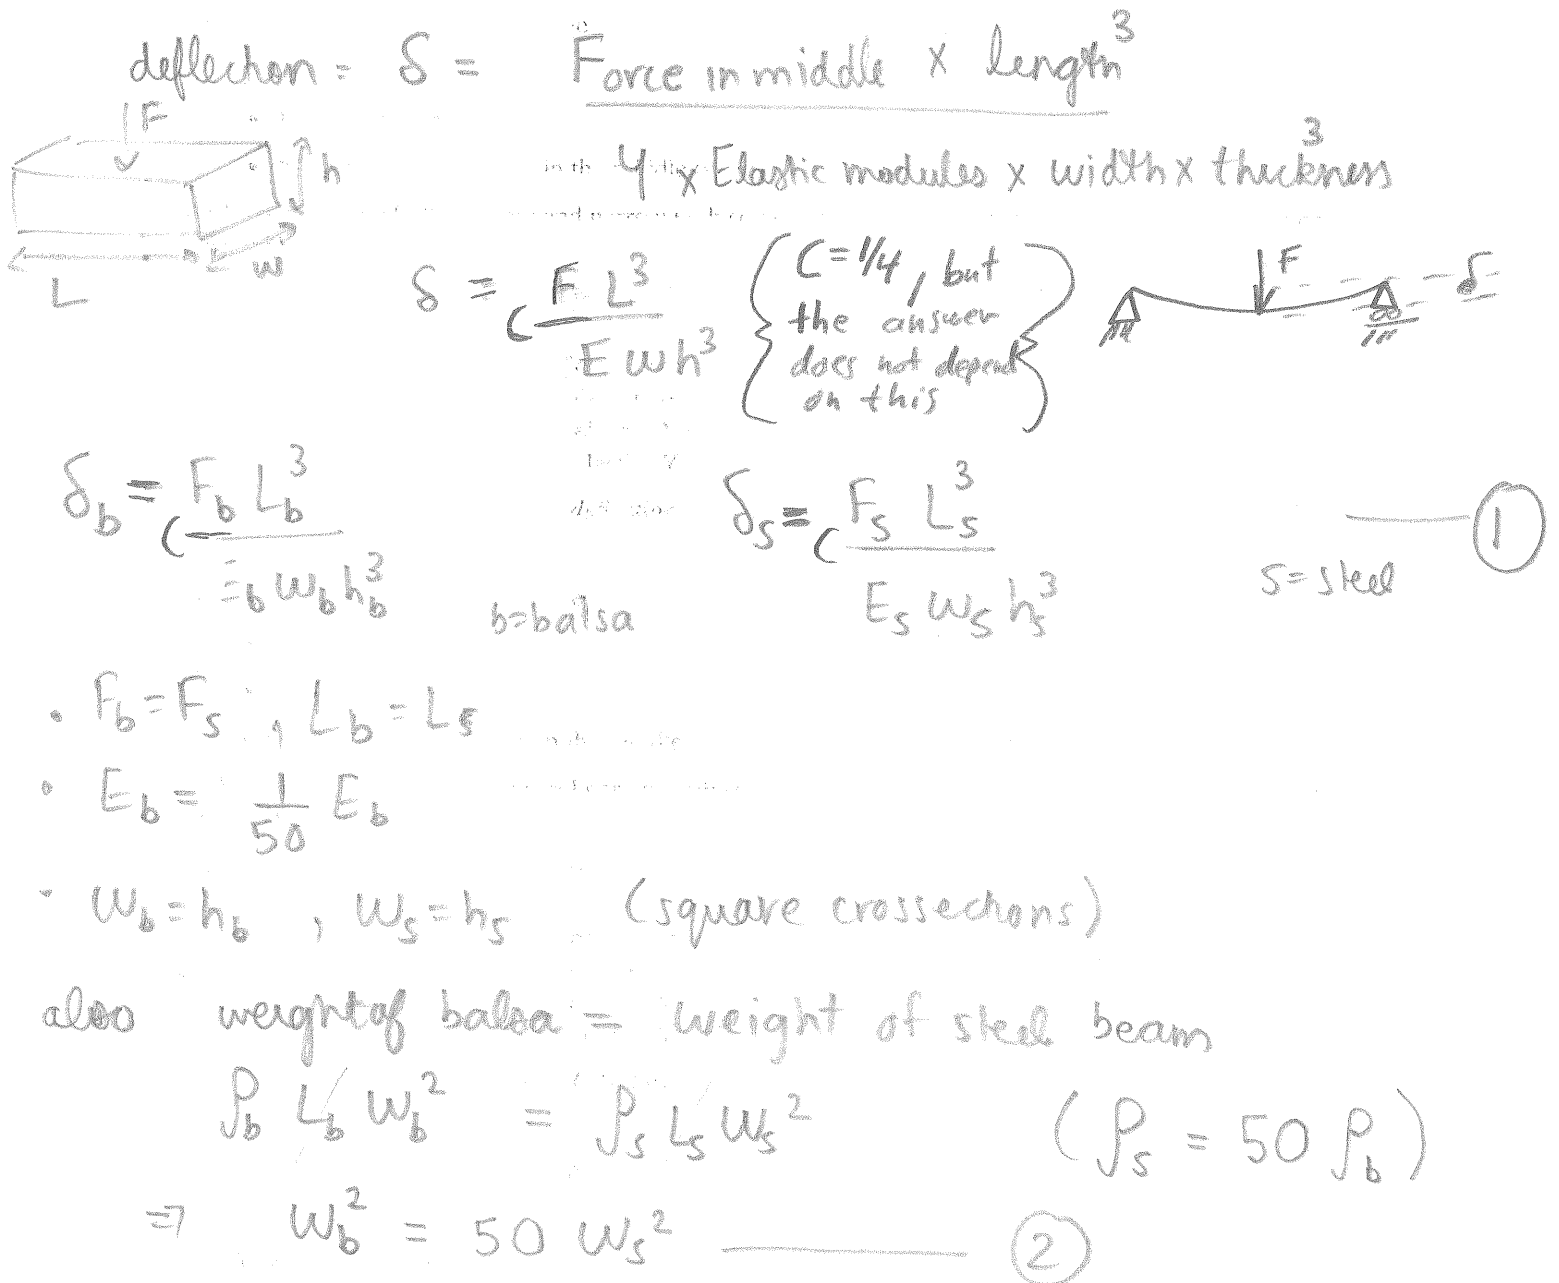 deflection = δ = Force in middle × length³
4 × Elastic modules × width × thickness³
F
h
w
L
δ = C F L³ / E w h³
{ C = 1/4, but
the answer
does not depend
on this }
F
δ
δ_b = C F_b L_b³ / E_b w_b h_b³
b = balsa
δ_s = C F_s L_s³ / E_s w_s h_s³
①
s = steel
• F_b = F_s , L_b = L_s
• E_b = 1/50 E_b
• w_b = h_b , w_s = h_s (square crossections)
also weight of balsa = weight of steel beam
ρ_b L_b w_b² = ρ_s L_s w_s² (ρ_s = 50 ρ_b)
⇒ w_b² = 50 w_s² ②